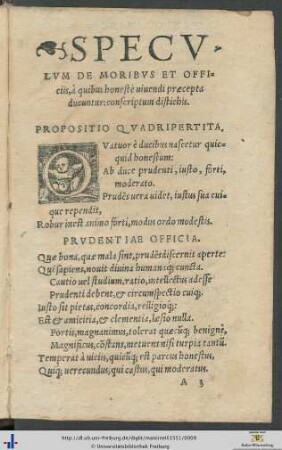 SPECV
LVM DE MORIBVS ET OFFI-
ciis, à quibus honestè uiuendi præcepta
ducuntur: conscriptum distichis.
PROPOSITIO QVADRIPERTITA.
QVatuor è ducibus nascetur quic-
quid honestum:
Ab duce prudenti, iusto, forti,
moderato.
Prudēs uera uidet, iustus sua cui-
que rependit,
Robur inest animo forti, modus ordo modestis.
PRVDENTIAE OFFICIA.
Quæ bona, quæ mala sint, prudēs discernit aperte:
Qui sapiens, nouit diuina humanaq; cuncta.
Cautio uel studium, ratio, intellectus adesse
Prudenti debent, & circumspectio cuiq;.
Iusto sit pietas, concordia, relligioq;:
Est & amicitia, & clementia, læsio nulla.
Fortis, magnanimus, tolerat quæcūq; benignè,
Magnificus, cōstans, metuens nisi turpia tantū.
Temperat à uiciis, quicūq; est parcus honestus,
Quiq; uerecundus, qui castus, qui moderatus.
A 3
http://dl.ub.uni-freiburg.de/diglit/
© Universitätsbibliothek Freiburg